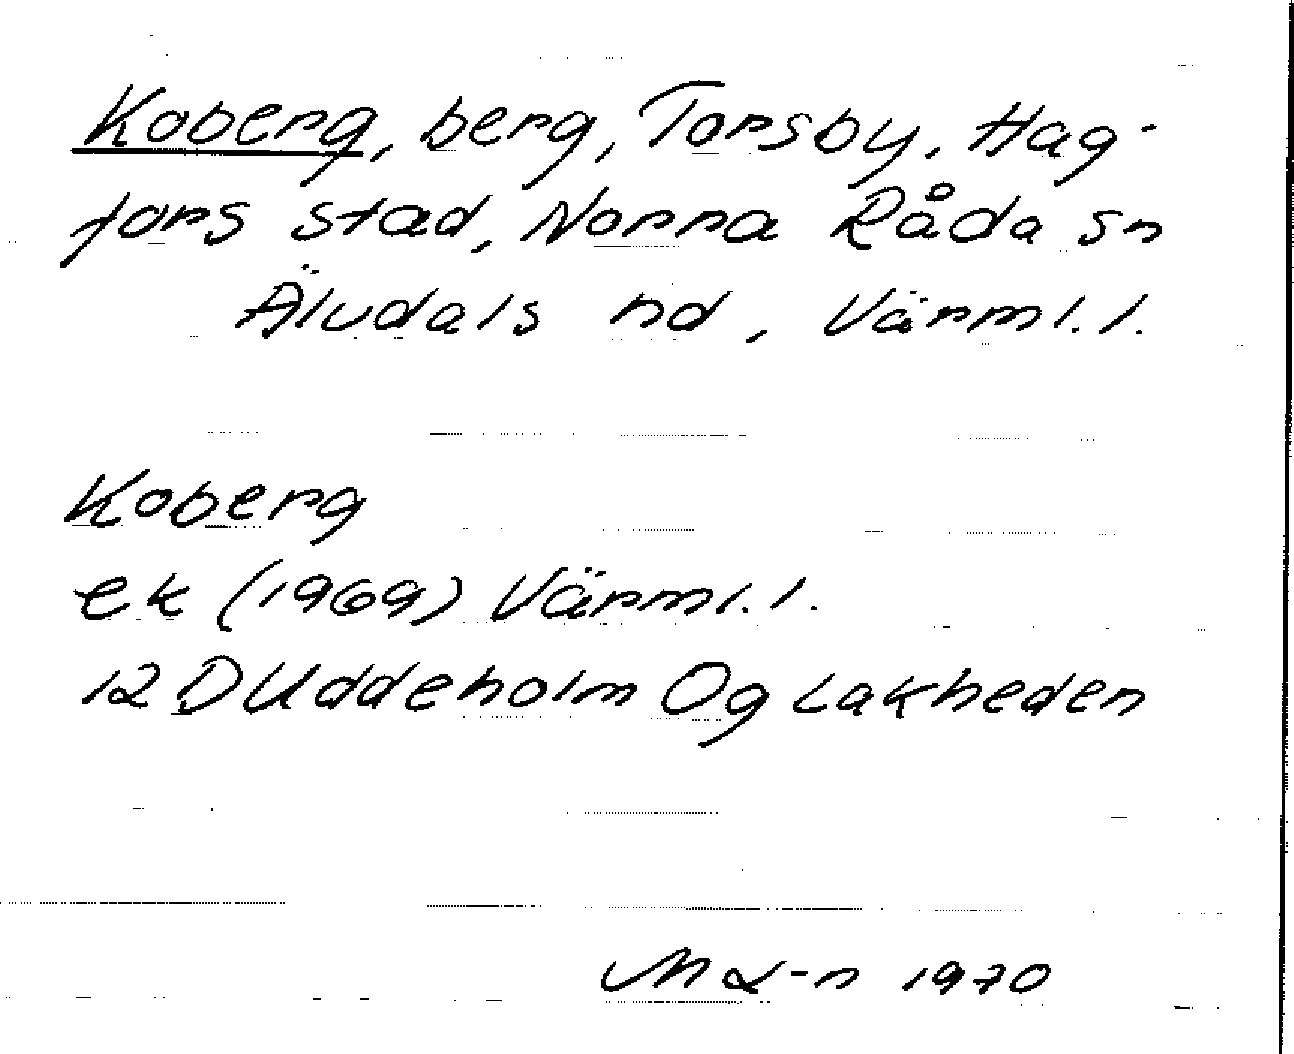 Koberg, berg, Torsby, Hag-
fors stad, Norra Råda sn
Älvdals hd, Värml. l.
Koberg
ek (1969) Värml. l.
12 D Uddeholm Og Lakheden
1970